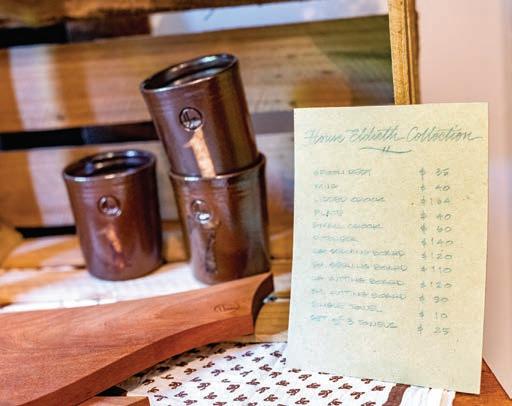 House Eldreth Collection
SPOON REST $ 35
MUG $ 40
LIDDED CROCK $ 164
PLATE $ 40
SMALL CROCK $ 60
PITCHER $ 140
LG SERVING BOARD $ 120
SM. SERVING BOARD $ 110
LG CUTTING BOARD $ 120
SM CUTTING BOARD $ 90
SINGLE TOWEL $ 10
SET OF 3 TOWELS $ 25